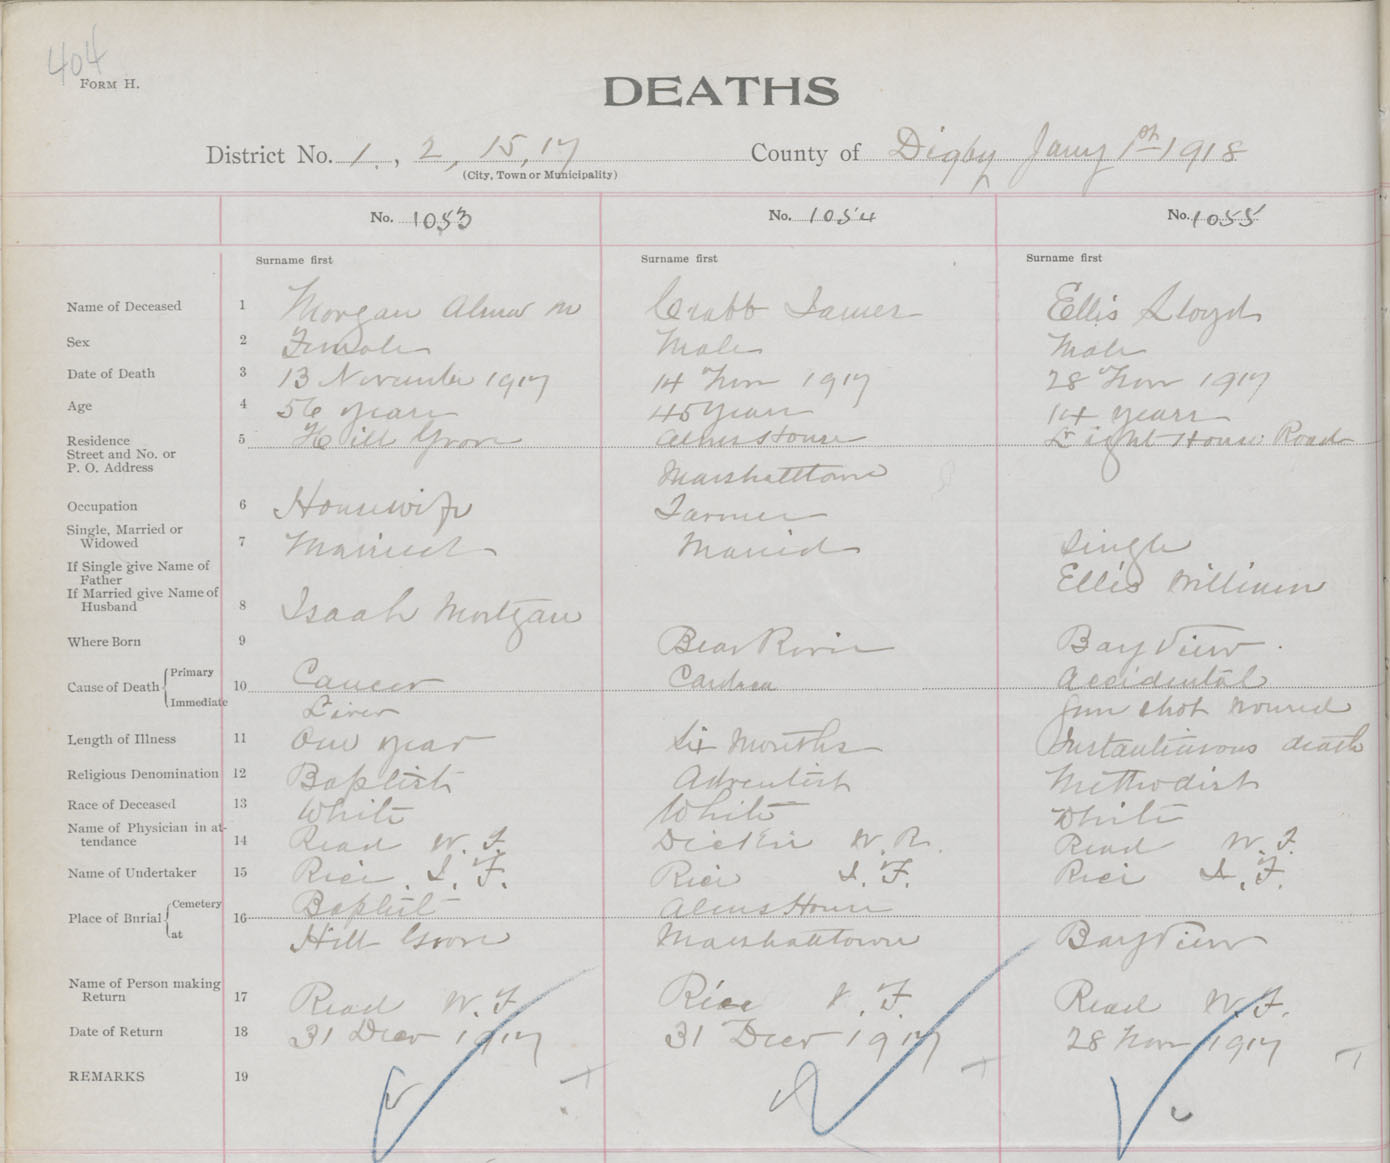 404
FORM H.
DEATHS
District No. 1, 2, 15, 17 County of Digby Jany 1st 1918
(City, Town or Municipality)
No. 1053 No. 1054 No. 1055
Surname first Surname first Surname first
Name of Deceased 1 Morgan Alma M Crabb James Ellis Lloyd
Sex 2 Female Male Male
Date of Death 3 13 November 1917 14 Nov 1917 28 Nov 1917
Age 4 56 years 45 years 14 years
Residence 5 Hill Grove Alms House Light House Road
Street and No. or
P. O. Address Marshalltown
Occupation 6 Housewife Farmer
Single, Married or
Widowed 7 Married Married Single
If Single give Name of
Father Ellis William
If Married give Name of
Husband 8 Isaah Mortgan
Where Born 9 Bear River Bay View
Cause of Death Primary 10 Cancer Accidental
Immediate Liver Gun shot wound
Length of Illness 11 One year Six Months Instantaneous death
Religious Denomination 12 Baptist Adventist Methodist
Race of Deceased 13 White White White
Name of Physician in at-
tendance 14 Read W. F. Dickie W. R. Read W. F.
Name of Undertaker 15 Rice I. F. Rice I. F. Rice I. F.
Place of Burial Cemetery 16 Baptist Alms House
at Hill Grove Marshalltown Bay View
Name of Person making
Return 17 Read W. F. Rice I. F. Read W. F.
Date of Return 18 31 Decr 1917 31 Decr 1917 28 Nov 1917
REMARKS 19